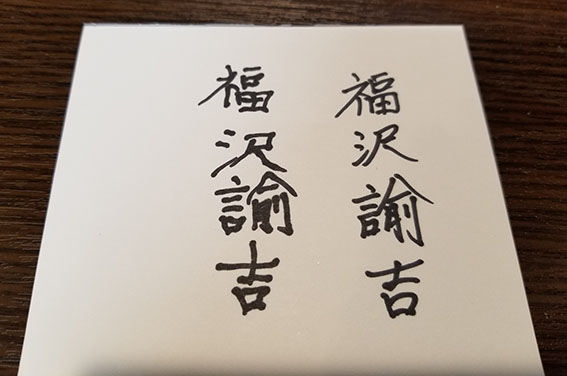 福沢諭吉
福沢諭吉